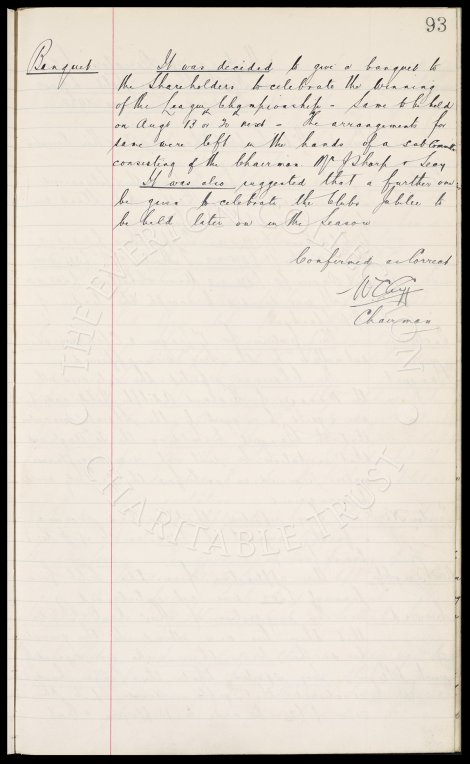 93
Banquet
It was decided to give a banquet to
the Shareholders to celebrate the winning
of the League Championship - Same to be held
on Augt 13 or next - The arrangements for
same were left in the hands of a sub Committee
consisting of the Chairman Mr J Sharp & Secy
It was also suggested that a further one
be given to celebrate the Clubs Jubilee to
be held later on in the Season
Confirmed as Correct
W C Cuff
Chairman
THE EVERTON COLLECTION
CHARITABLE TRUST